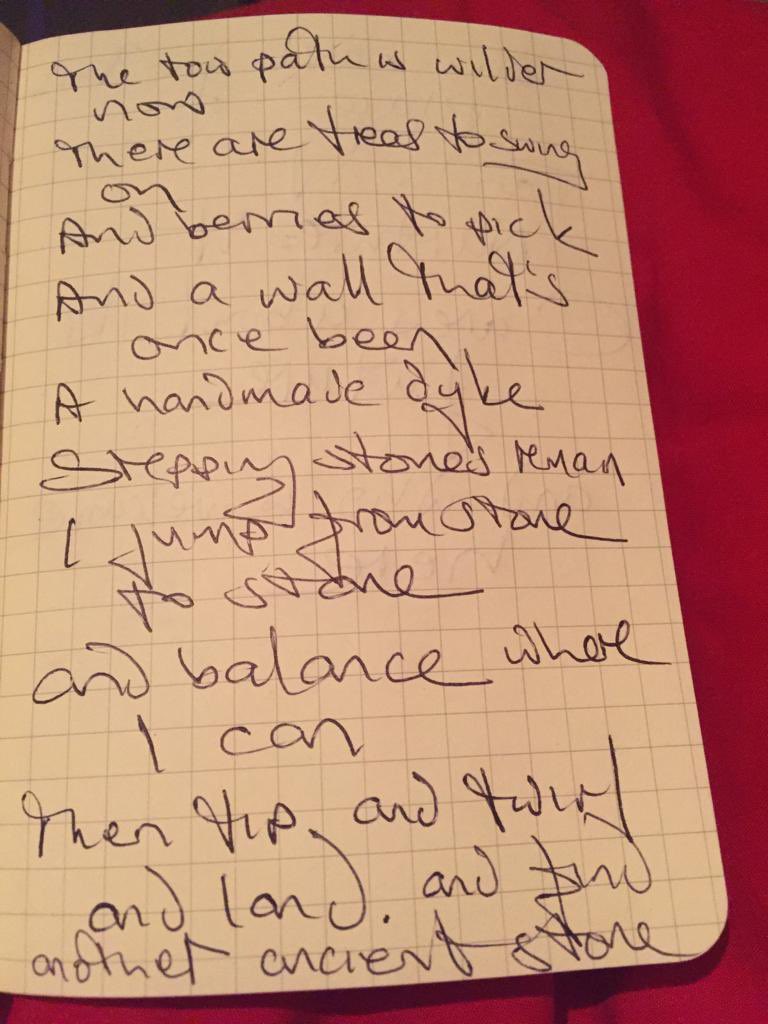 The tow path is wilder
now
There are trees to swing
on
And berries to pick
And a wall that's
once been
A handmade dyke
Stepping stones remain
I jump from stone
to stone
and balance where
I can
Then tip, and twirl
and land. and find
another ancient stone